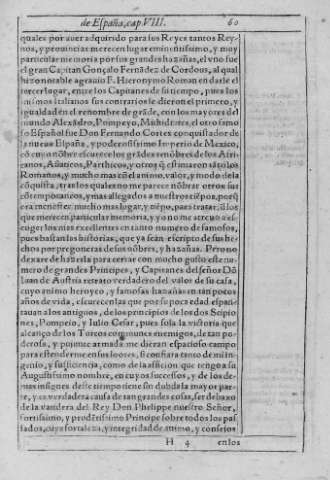 de España, cap. VIII. 60
quales por auer adquirido para sus Reyes tantos Rey-
nos, y prouincias merecen lugar eminentissimo, y muy
particular memoria por sus grandes hazañas, el vno fue
el gran Capitan Gonçalo Fernãdez de Cordoua, al qual
hizo notable agrauio F. Hieronymo Roman en darle el
tercer lugar, entre los Capitanes de su tiempo, pues los
mismos Italianos sus contrarios le dieron el primero, y
igualdad en el renombre de grãde, con los mayores del
mundo Alexãdro, Pompeyo, Mahometes, el otro famo
so Español fue Don Fernando Cortes conquistador de
la nueua España, y poderosissimo Imperio de Mexico,
cõ cuyo nõbre escurece los grãdes renõbres de los Afri-
canos, Asiaticos, Parthicos, y otros q̃ estimaron tãto los
Romanos, y mucho mas cõ el animo, valor, y modo de la
cõquista, tras los quales no me parece nõbrar otros sus
cõtemporaneos, y mas allegados a nuestros tiẽpos, porq̃
era menester mucho mas lugar, y tiẽpo, para tratar de los
que merecen particular memoria, y yo no me atreuo a es-
coger los mas excellentes en tanto numero de famosos,
pues bastan las historias, que ya estan escripto de sus he-
chos por pregoneras de sus nõbres, y hazañas. Pero no
dexare de hazerla para cerrar con mucho gusto este nu-
mero de grandes Principes, y Capitanes del señor Dõ
Iuan de Austria retrato verdadero del valor de su casa,
cuyo animo heroyco, y famosas hazañas en tan pocos
años de vida, escurecen las que por su poca edad espan-
tauan a los antiguos, de los principios de los dos Scipio
nes, Pompeio, y Iulio Cesar, pues sola la victoria que
alcanço de los Turcos comunes enemigos, de tan po-
derosa, y pujante armada me dieran espacioso campo
para estenderme en sus loores, si confiara tanto de mi in-
genio, y sufficiencia, como de la afficion que tengo a su
Augustissimo nombre, en cuyos successos, y de los de-
mas insignes deste tiempo tiene sin dubda la mayor par-
te, y es verdadera causa de tan grandes cosas, ser debaxo
de la vandera del Rey Don Phelippe nuestro Señor,
fortissimo, y prudẽtissimo Principe sobre todos los pas-
sados, cuya fortaleza, y integridad de animo, y consejos
H 4 en los